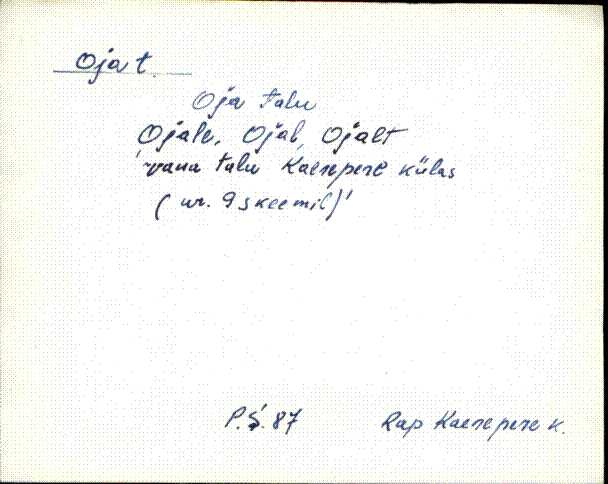 Oja t.
Oja talu
Ojale, Ojal, Ojalt
'vana talu Kaerepere külas
(nr. 9 skeemil)'
P.Š. 87 Rap Kaerepere k.